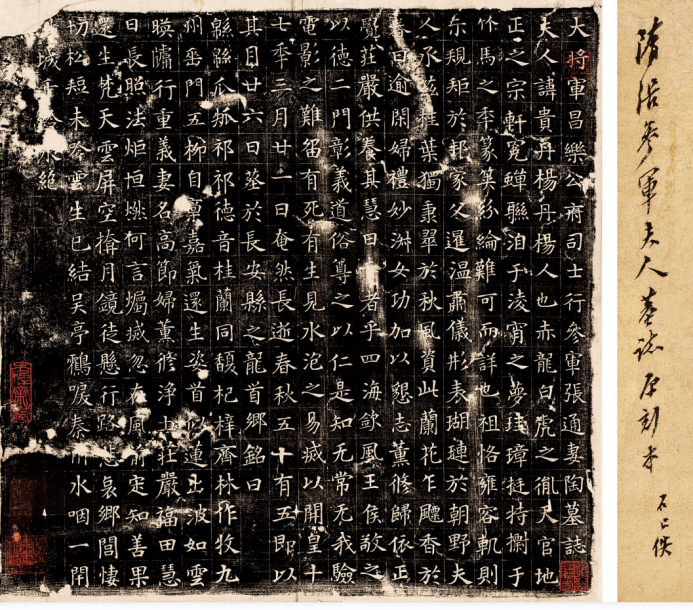 隋張參軍夫人墓誌原刻本
石已佚
大將軍昌樂公府司士行參軍張通妻陶墓誌
夫人諱貴丹楊丹楊人也赤龍白虎之胤天官地
正之宗軒冕蟬聯洎于淩霄之夢珪璋挺特擲于
竹馬之秊篆筭紛綸難可而詳也祖恪雍容軌則
尒規矩於邦家父暹温肅儀形表瑚璉於朝野夫
人承茲桂葉獨秉翠於秋風資此蘭花乍飄香於
春日逾閑婦禮妙渊女功加以懇志薰脩歸依正
覺莊嚴供養其慧日者乎四海欽風王侯敬之
以德二門彰義道俗尊之以仁是知无常无我驗
電影之難留有死有生見水泡之易滅以開皇十
七秊三月廿二日奄然長逝春秋五十有五即以
其月廿六日塟於長安縣之龍首鄉銘曰
緜緜瓜瓞祁祁德音桂蘭同馥杞梓齊林作牧九
州垂門五柳自禀嘉氣還生姿首似蓮出波如雲
暎牖行重義妻名高節婦薰脩淨土莊嚴福田慧
日長照法炬恒燃何言忽在風前定知善果
還生梵天雲屏空掩月鏡徒懸行路悲哀鄉閭悽
切松短未吟雲生已結吴亭鶴唳秦川水咽一閇
城千永絶